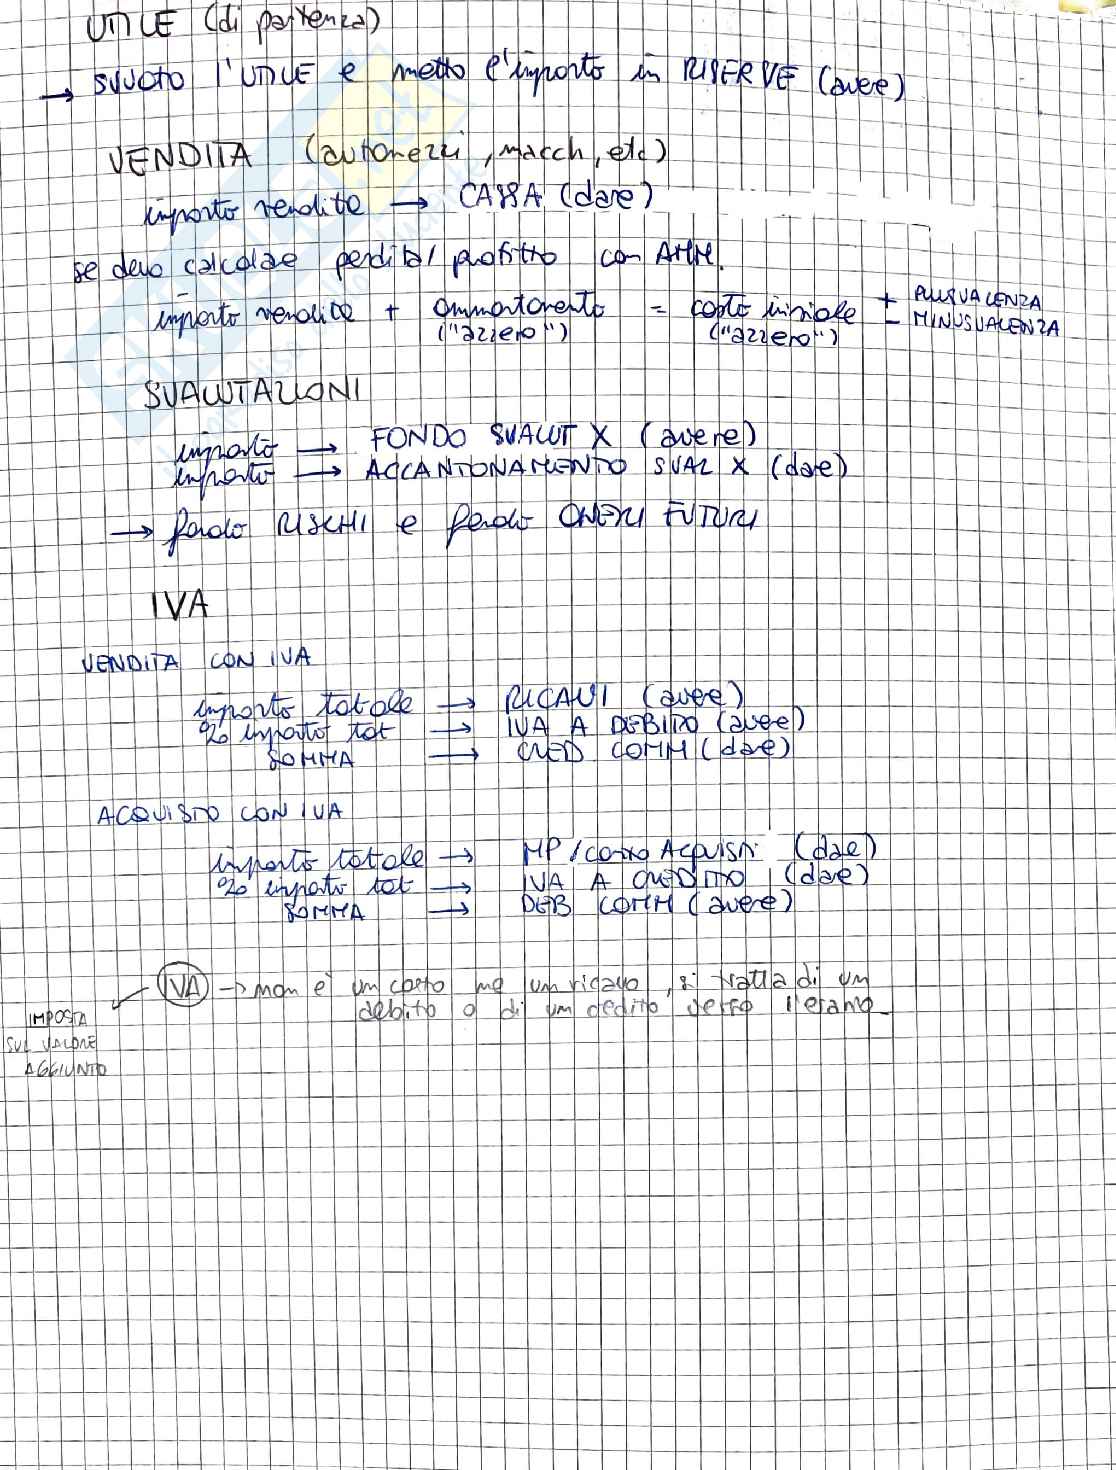 UTILE (di partenza)
→ SVUOTO l'UTILE e metto l'importo in RISERVE (avere)
VENDITA (automezzi, macch, etc)
importo vendite → CASSA (dare)
se devo calcolare perdita/profitto con AMM.
importo vendite + ammortamento = costo iniziale + PLUSVALENZA
("azzero") ("azzero") - MINUSVALENZA
SVALUTAZIONI
importo → FONDO SVALUT X (avere)
importo → ACCANTONAMENTO SVAL X (dare)
→ fondo RISCHI e fondo ONERI FUTURI
IVA
VENDITA CON IVA
importo totale → RICAVI (avere)
% importo tot → IVA A DEBITO (avere)
SOMMA → CRED COMM (dare)
ACQUISTO CON IVA
importo totale → MP/conto Acquisti (dare)
% importo tot → IVA A CREDITO (dare)
SOMMA → DEB COMM (avere)
IVA → non è un costo ne un ricavo, si tratta di un
debito o di un credito verso l'erario
IMPOSTA
SUL VALORE
AGGIUNTO